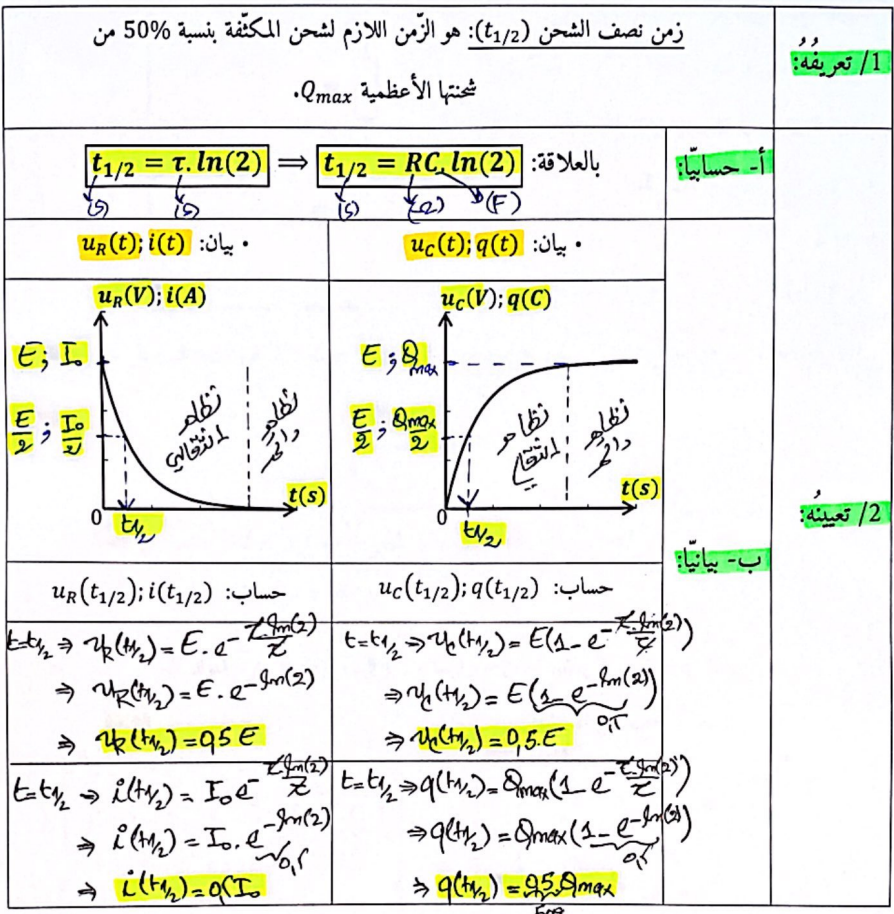 1/ تعريفُهُ:
زمن نصف الشحن (t1/2): هو الزّمن اللازم لشحن المكثّفة بنسبة 50% من
شحنتها الأعظمية Qmax.
2/ تعيينهُ:
أ- حسابيّا:
بالعلاقة: t1/2 = τ. ln(2) ⟹ t1/2 = RC. ln(2)
(s) (s) (s) (Ω) (F)
ب- بيانيّا:
• بيان: uC(t); q(t)
uC(V); q(C)
E ; Qmax
E/2 ; Qmax/2
نظام انتقالي
نظام دائم
0
t1/2
t(s)
• بيان: uR(t); i(t)
uR(V); i(A)
E ; I0
E/2 ; I0/2
نظام انتقالي
نظام دائم
0
t1/2
t(s)
حساب: uC(t1/2); q(t1/2)
t=t1/2 ⇒ uC(t1/2) = E(1 - e^-τ.ln(2)/τ)
⇒ uC(t1/2) = E(1 - e^-ln(2))
0,5
⇒ uC(t1/2) = 0,5.E
t=t1/2 ⇒ q(t1/2) = Qmax(1 - e^-τ.ln(2)/τ)
⇒ q(t1/2) = Qmax(1 - e^-ln(2))
0,5
⇒ q(t1/2) = 0,5.Qmax
حساب: uR(t1/2); i(t1/2)
t=t1/2 ⇒ uR(t1/2) = E. e^-τ.ln(2)/τ
⇒ uR(t1/2) = E. e^-ln(2)
⇒ uR(t1/2) = 0,5 E
t=t1/2 ⇒ i(t1/2) = I0 e^-τ.ln(2)/τ
⇒ i(t1/2) = I0. e^-ln(2)
0,5
⇒ i(t1/2) = 0,5 I0